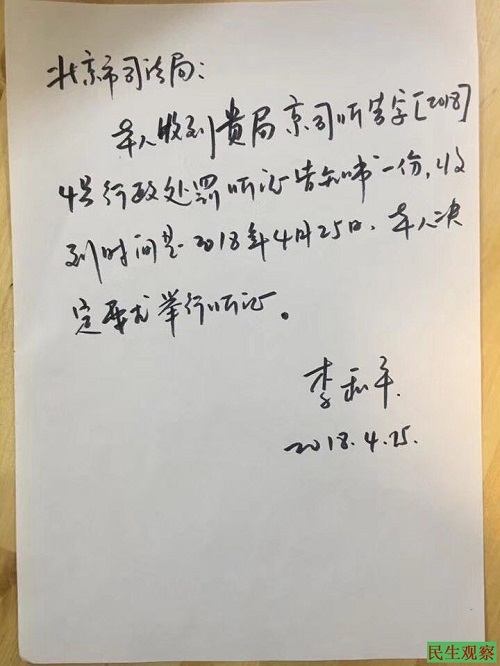 北京市司法局：
本人收到贵局京司听告字[2018]
4号行政处罚听证告知书一份，收
到时间是2018年4月25日，本人决
定要求举行听证。
李和平
2018.4.25.
民生观察